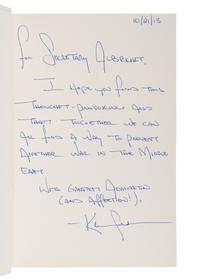 10/21/13
for Secretary Albright,
I hope you find this
thought-provoking and
that together we can
all find a way to prevent
another war in the Middle
East.
With greatest admiration
(and affection!),